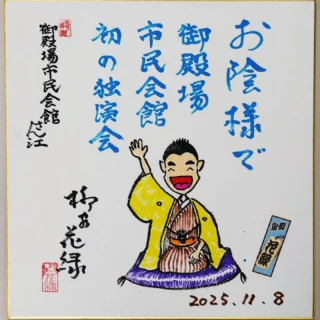 お陰様で
御殿場
市民会館
初の独演会
御殿場市民会館
さん江
柳家花緑
2025.11.8